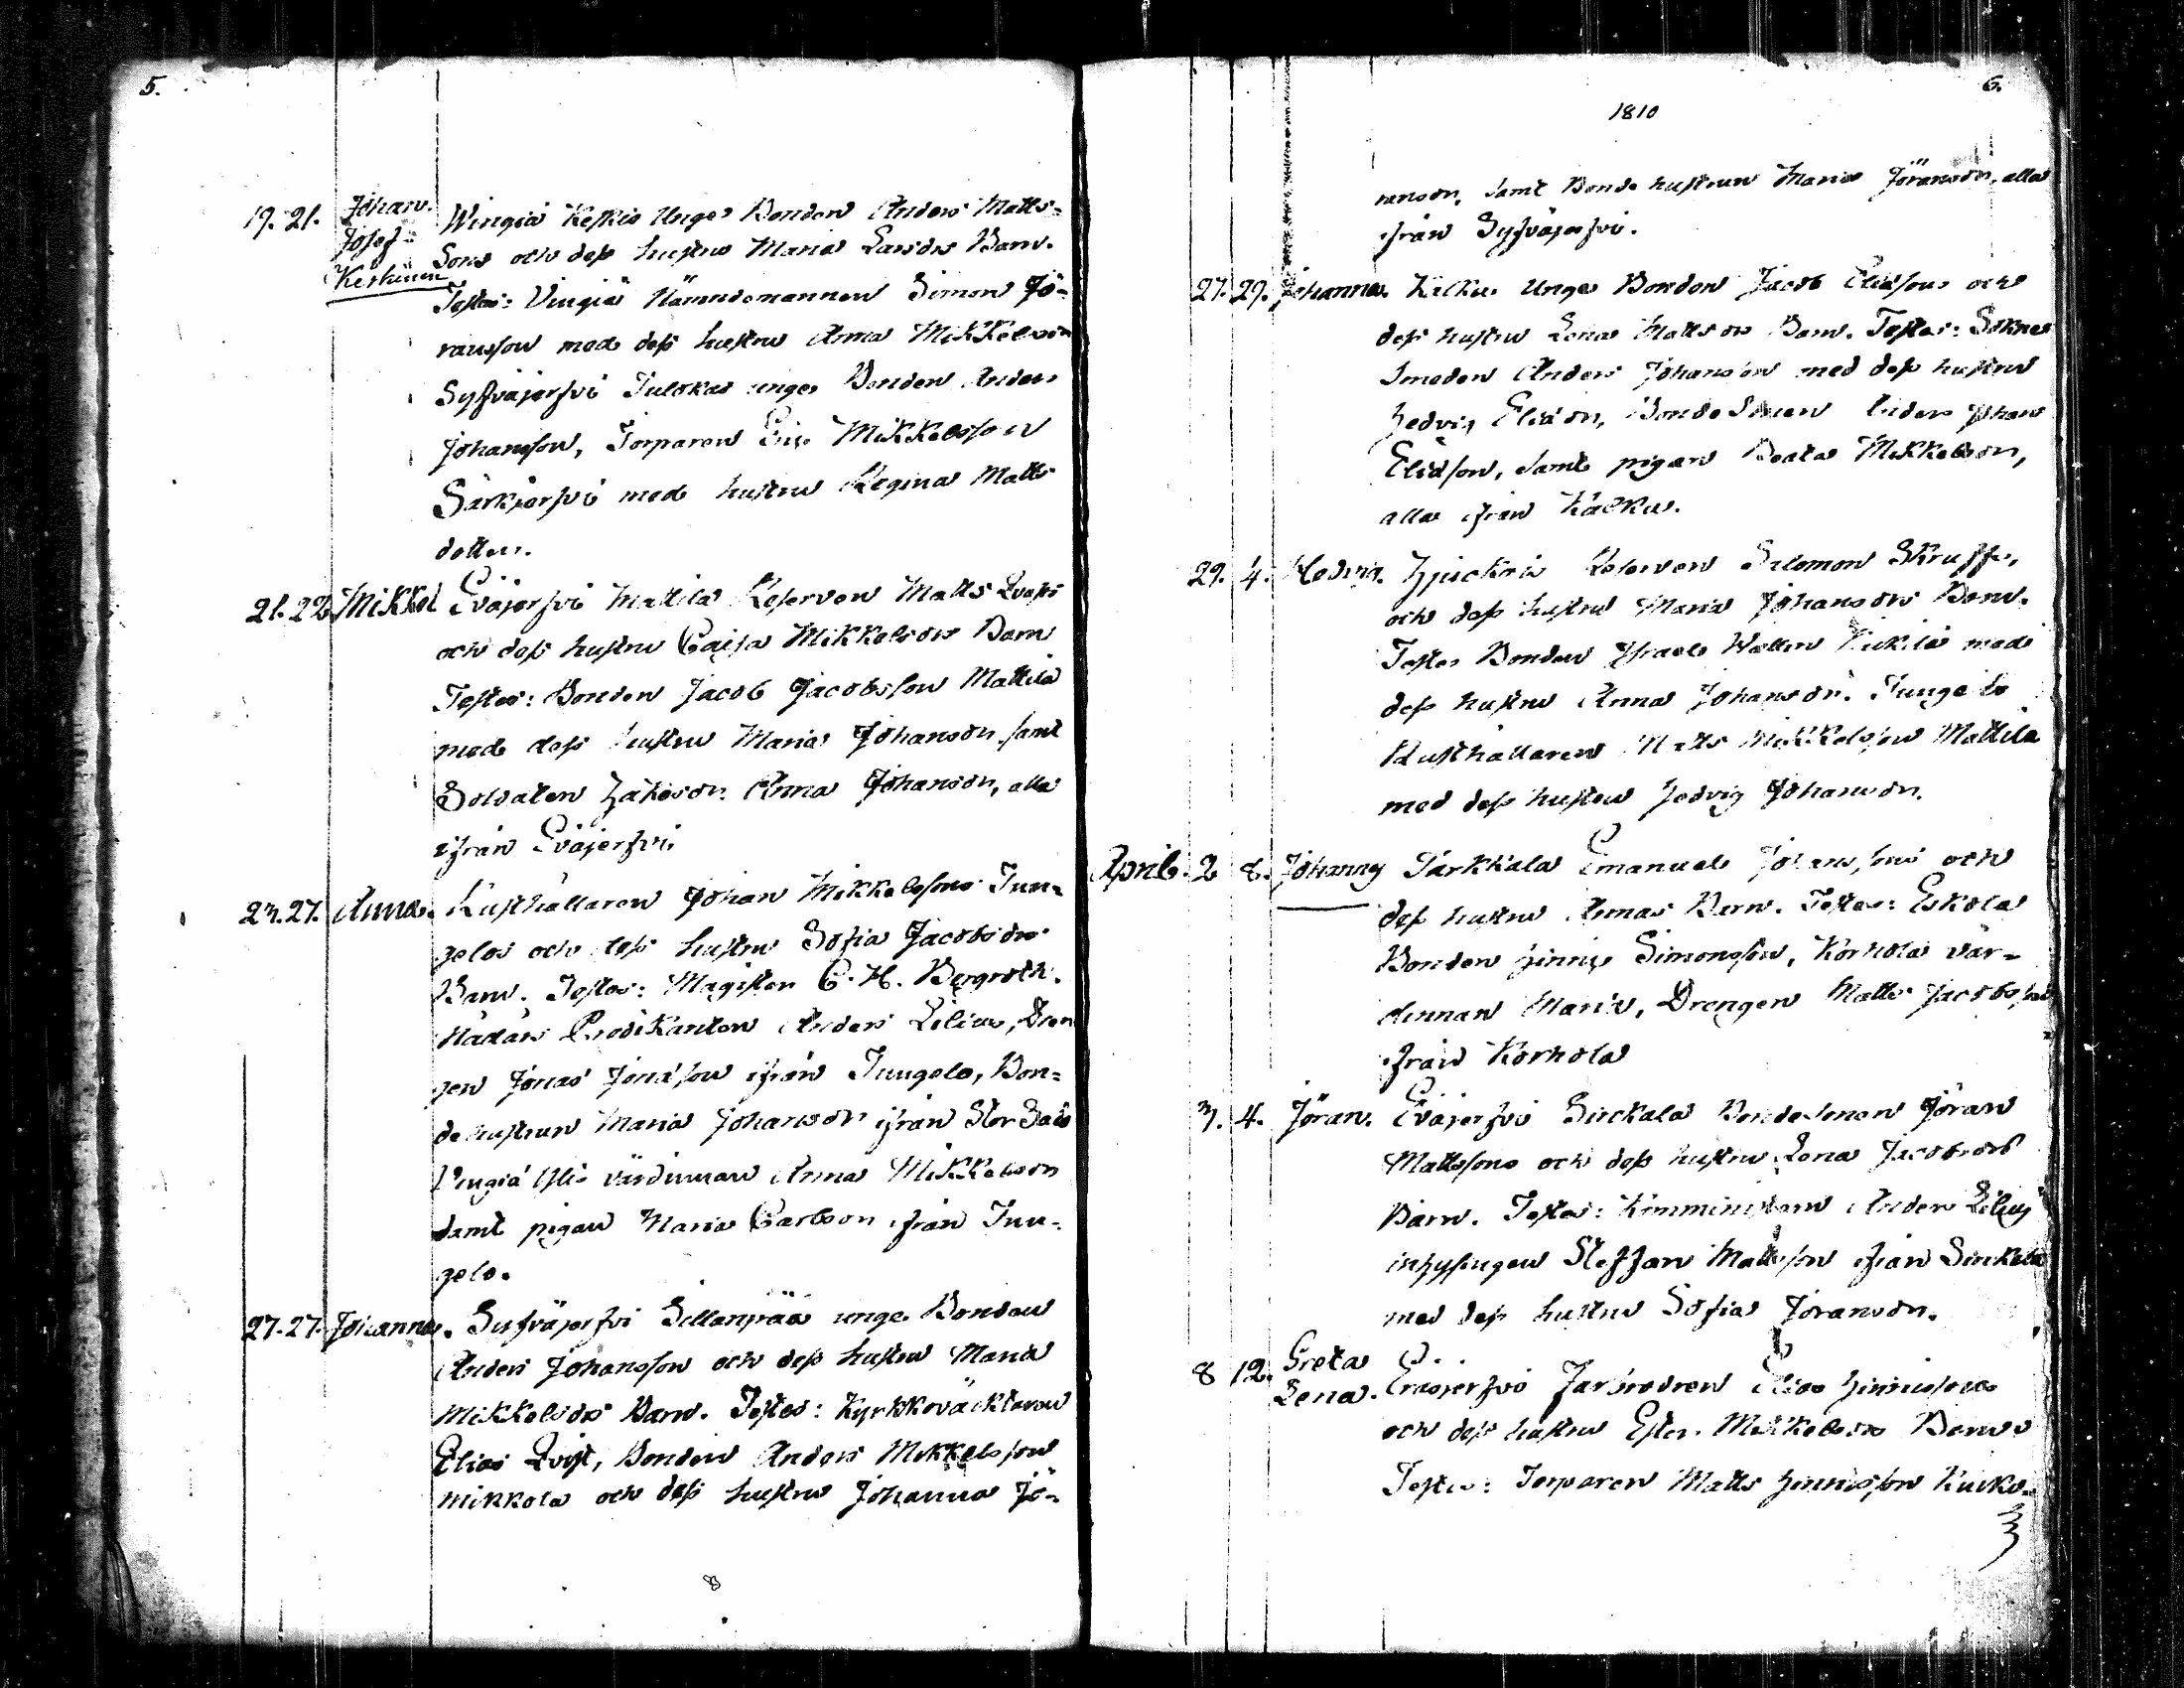 5.
19. 21. Johan. Wingiä Keskis Unge Bonden Anders Matts-
Josef Sons och dess hustru Maria Larsdrs Barn.
Keskinen Testes: Vingiä Nämndemannen Simon Jö-
ransson med dess hustru Anna Mikkelsdr
Syfväjerfvi Tulokas unge Bonden Anders
Johansson, Torparen Eric Mikkelsson
Särkjerfvi med hustru Regina Matts
dotter.
21. 22. Mikkel Eväjerfvi Mattila Reserven Matts
och dess hustru Cajsa Mikkelsdrs Barn
Testes: Bonden Jacob Jacobsson Mattila
med dess hustru Maria Johansdr samt
Soldaten Anna Johansdr, alla
ifrån Eväjerfvi
27. Anna. Rusthållaren Johan Mikkelssons Jun-
gelos och dess hustru Sofia Jacobsdrs
Barn. Testes: Magister C. H. Bergroth.
Nådårs Predikanten Anders Lilius, Dren
gen Jonas Jonasson ifrån Jungelo, Bon-
dehustrun Maria Johansdr ifrån Stor
värdinnan Anna Mikkelsdr
samt pigan Maria Carlsdr ifrån Jun-
gelo.
27. 27. Johannes. Syfväjerfvi Sillanpää unge Bonden
Anders Johansson och dess hustru Maria
Mikkelsdrs Barn. Testes: Kyrkkoväcktaren
Elias Qvist, Bonden Anders Mikkelsson
Mikkola och dess hustru Johanna Jö-
6.
1810
ransdr, samt Bonde hustrun Maria Jöransdr, alla
ifrån Syfväjerfvi.
27. 29. Johannes. Kalku Unge Bonden Jacob Eliassons och
dess hustru Lena Mattsdrs Barn. Testes: Sokne
Smeden Anders Johansson med dess hustru
Hedvig Eliædr, Bonde Sonen Anders Johan
Eliasson, samt pigan Beata Mikkelsdr,
alla ifrån Kalku.
29. 4. Hedvig. Reserven Salomon Skruf,
och dess hustru Maria Johansdrs Barn.
Testes Bonden Israel med
dess hustru Anna Johansdr. Jungelo
Rusthållaren Matts Mikkelsson Mattila
med dess hustru Hedvig Johansdr.
April. 2 8. Johanna Tarkkala Emanuel Johanssons och
dess hustru Annas Barn. Testes: Eskola
Bonden Hinric Simonsson, Korhola vär-
dinnan Maria, Drengen Matts Jacobsson
ifrån Korhola
3. 4. Jöran. Eväjerfvi Sirckala Bondesonen Jöran
Mattssons och dess hustru Lena Jacobsdrs
Barn. Testes: Komministern Anders Lilius
inhysingen Steffan Mattsson ifrån Sirckala
med dess hustru Sofia Jöransdr.
8 12. Greta Lena. Eräjerfvi Farbrodren Elias Hinricssons
och dess hustru Ester Mikkelsdrs Barn
Testes: Torparen Matts Hinricsson